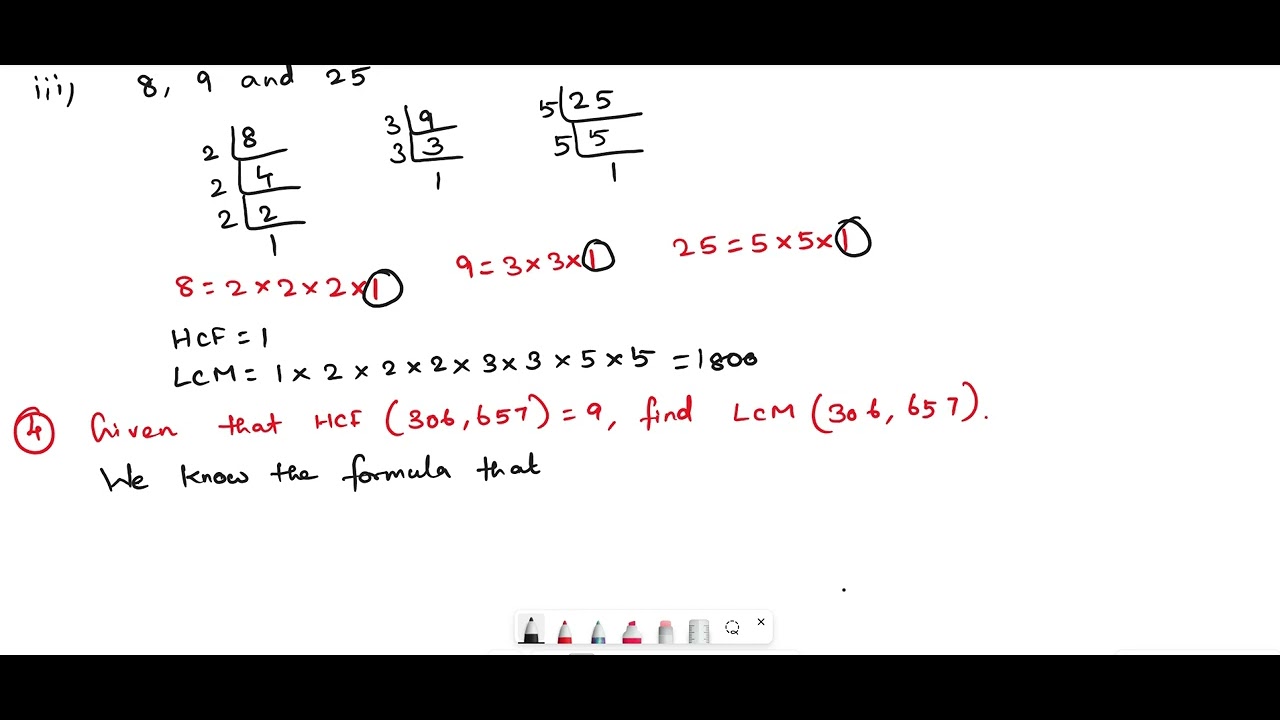 iii) 8, 9 and 25
2 8
2 4
2 2
1
3 9
3 3
1
5 25
5 5
1
8 = 2 × 2 × 2 × 1
9 = 3 × 3 × 1
25 = 5 × 5 × 1
HCF = 1
LCM = 1 × 2 × 2 × 2 × 3 × 3 × 5 × 5 = 1800
4 Given that HCF (306, 657) = 9, find LCM (306, 657).
We know the formula that